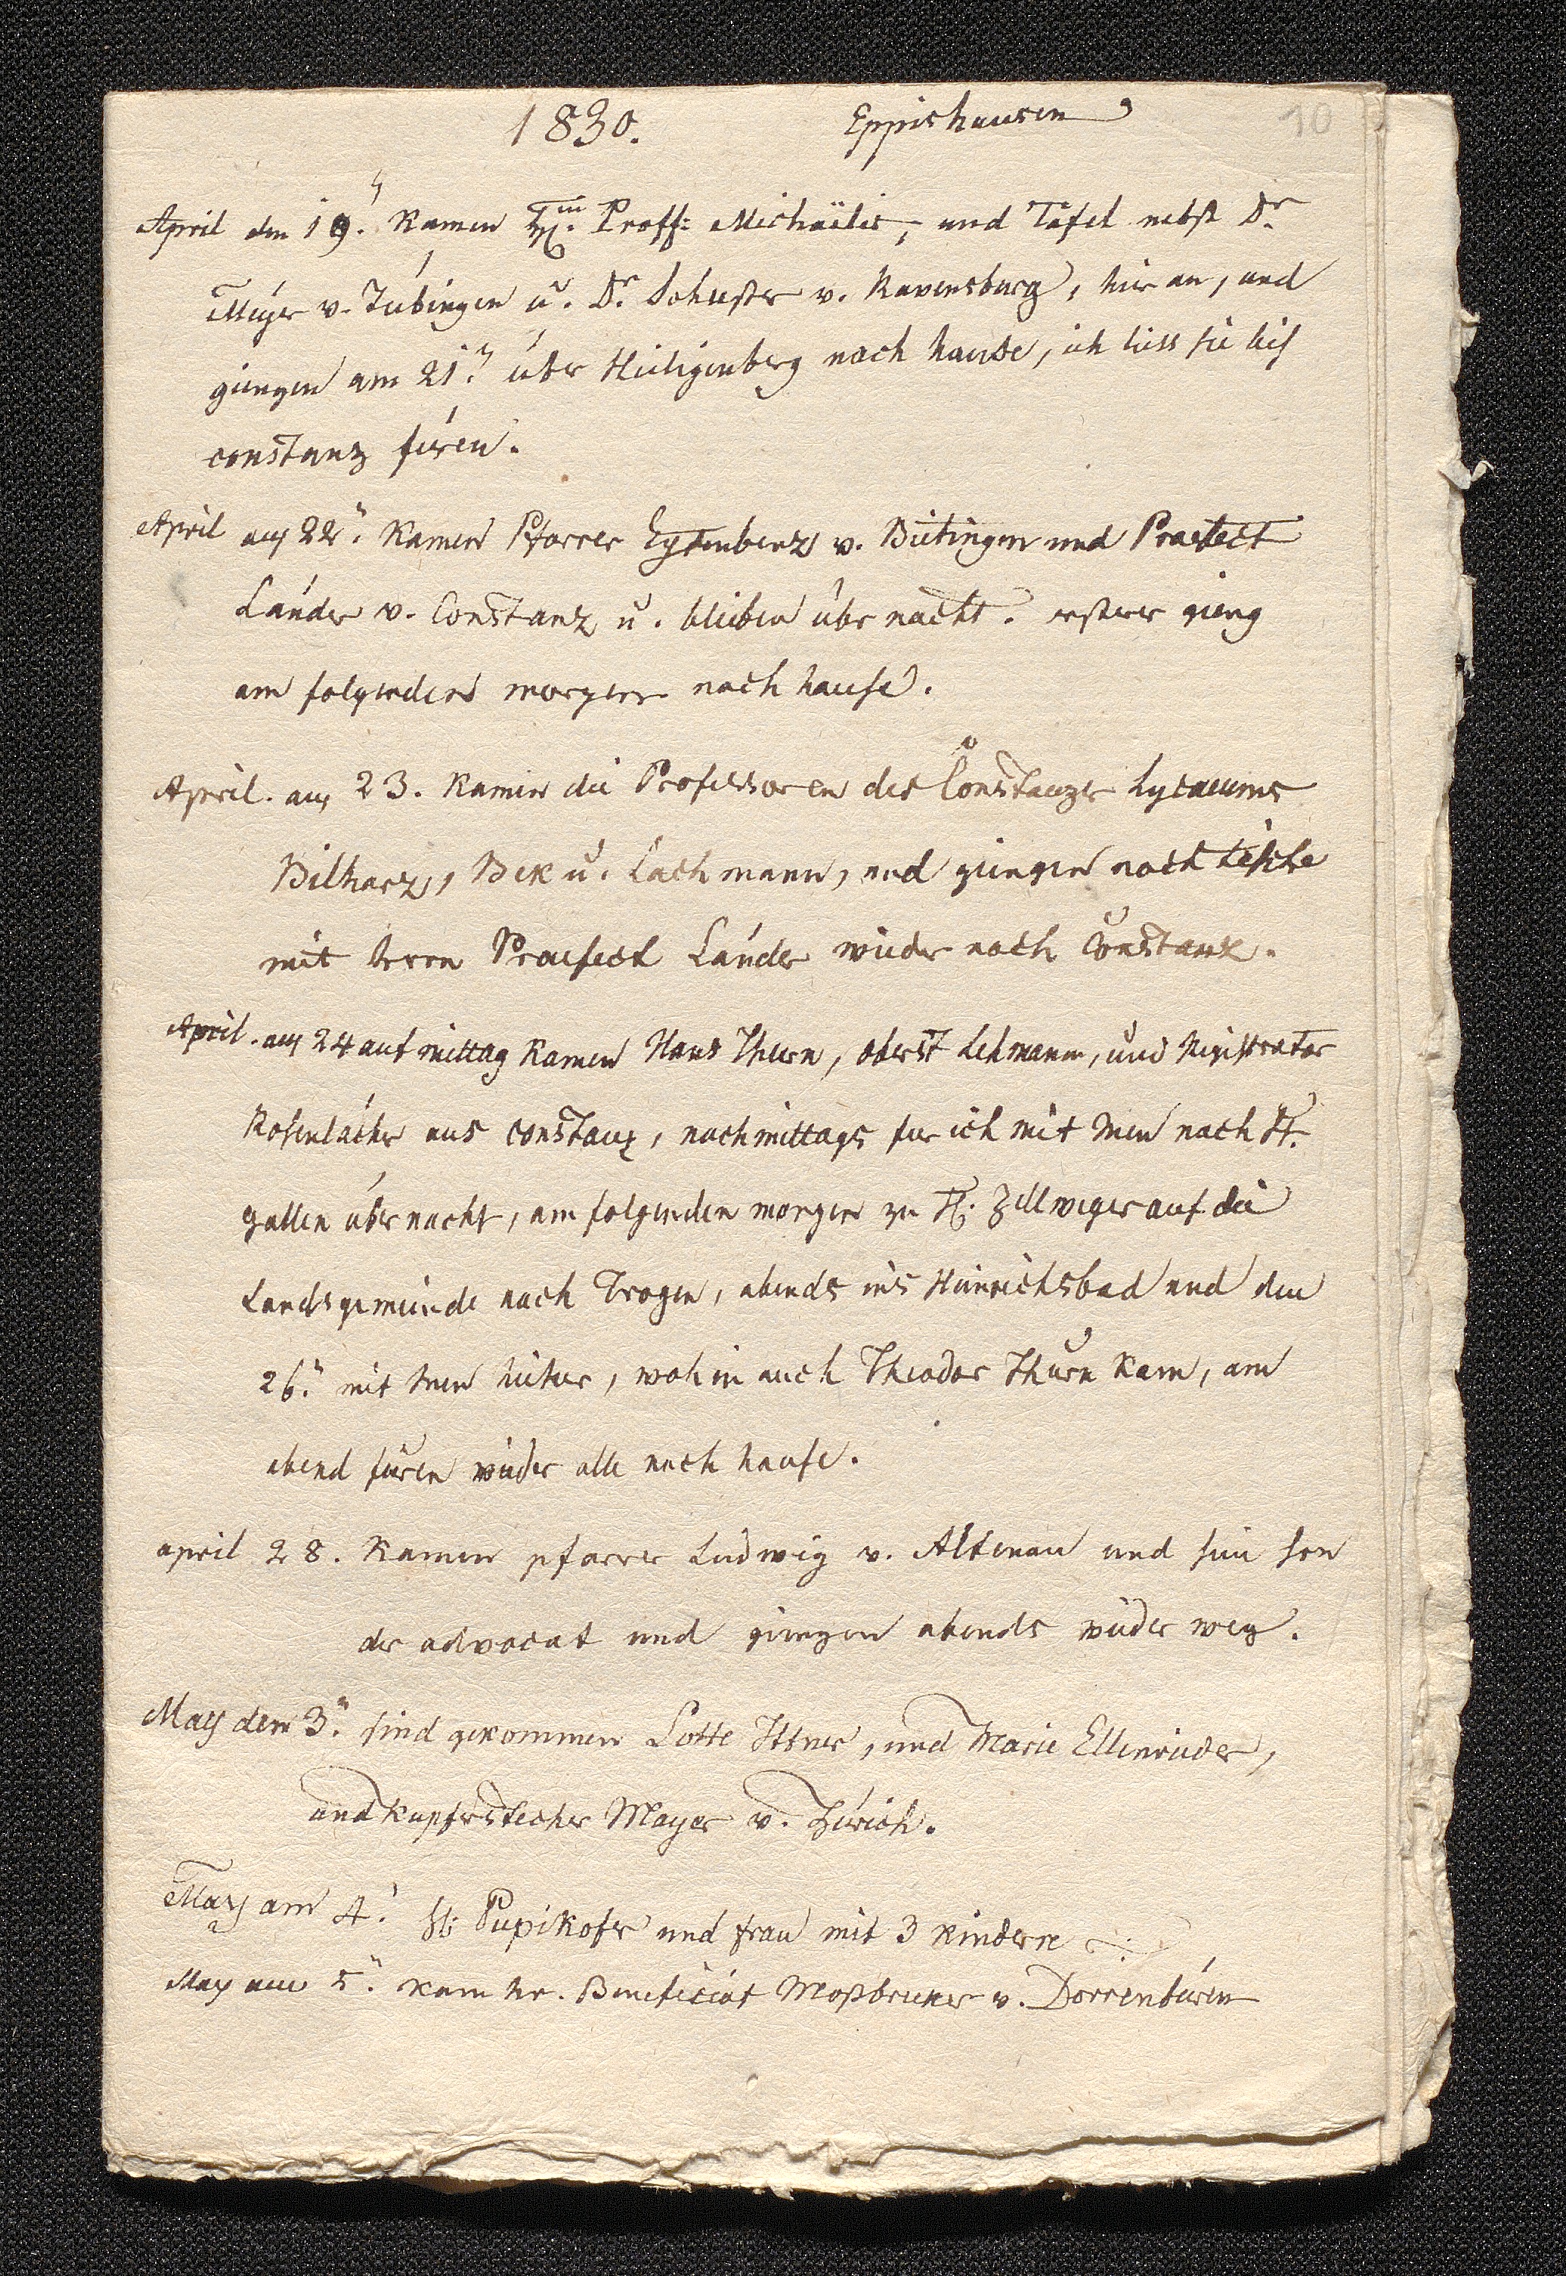 1830. Eppishausen 10
April den 19.ͭ kamen Hn. Proff: Michaëlis, und Tafel nebst Dr.
Meyer v. Tübingen u. Dr. Schuster v. Ravensburg, hier an, und
giengen am 21.ⁿ über Heiligenberg nach hause, ich liess sie bis
constanz füren.
April am 22.ⁿ kamen Pfarrer Eytenbenz v. Bietingen und Praefect
Länder v. Constanz u. blieben über nacht. ersterer gieng
am folgenden morgen nach hause.
April. am 23. kamen die Professoren des Constanzer Lycaeums
Bilharz, Bek u. Lachmann, und giengen nach tische
mit herrn Praefect Länder wieder nach Constanz.
April. am 24 auf mittag kamen Hans Thurn, oberst Lehmann, und Registrator
Rosenlächer aus constanz, nachmittags fur ich mit inen nach St.
gallen über nacht, am folgenden morgen zu H. Zellweger auf die
Landsgemeinde nach Trogen, abends ins Heinrichsbad und den
26.ⁿ mit inen hieher, wohin auch Theodor Thurn kam, am
abend füren wieder alle nach hause.
april 28. kamen pfarrer Ludwig v. Altenau und sein son
der advocat und giengen abends wieder weg.
May den 3.ⁿ sind gekommen Lotte Ittner, und Marie Ellenrieder,
und kupferstecher Mayer v. Zürich.
May am 4. H: Pupikofer und frau mit 3 kindern
May am 5.ⁿ kam hr. Beneficiat Moßbrucker v. Dorrenbüren